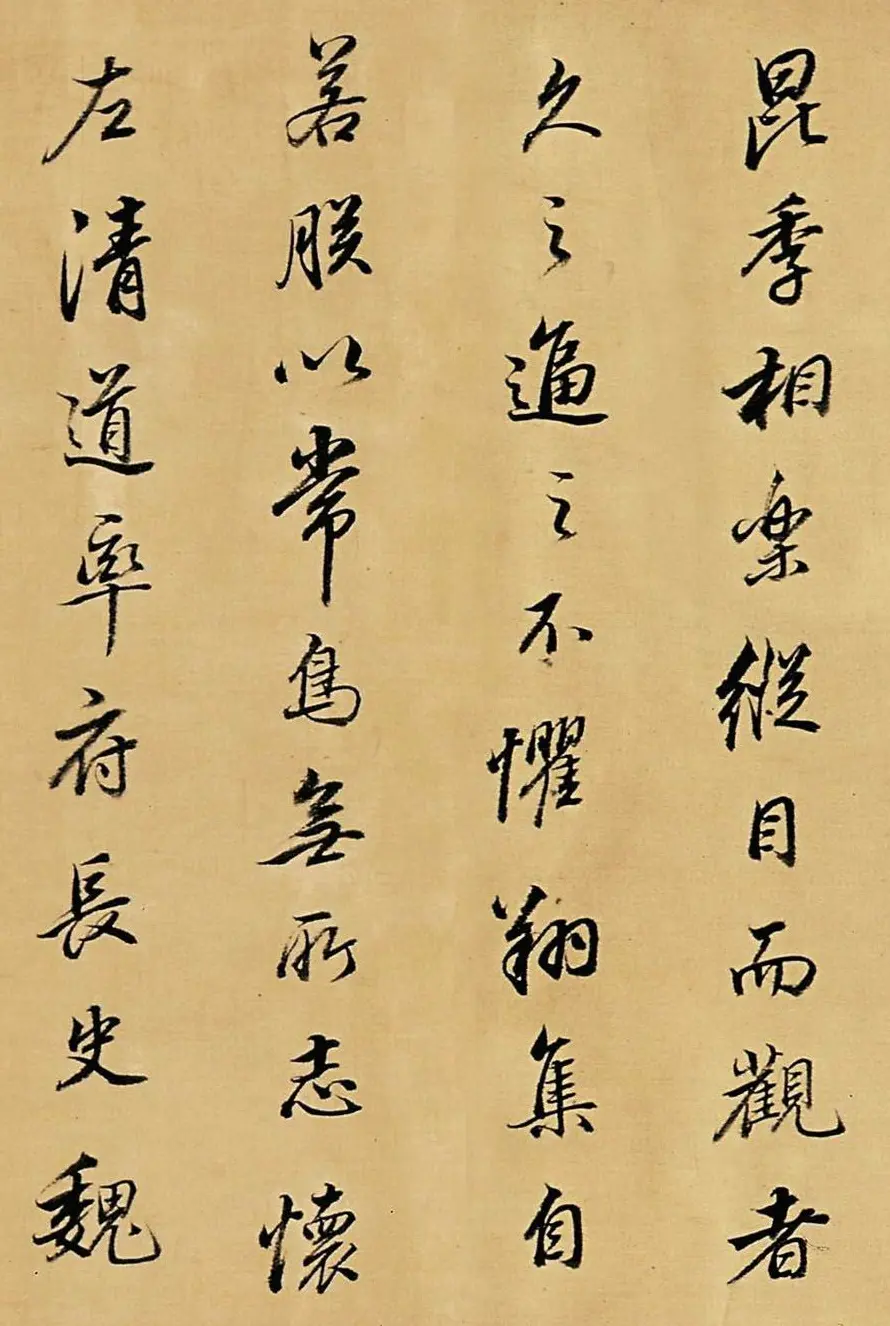 昆季相樂縱目而觀者
久之逼之不懼翔集自
若朕以常鳥無所志懷
左清道率府長史魏